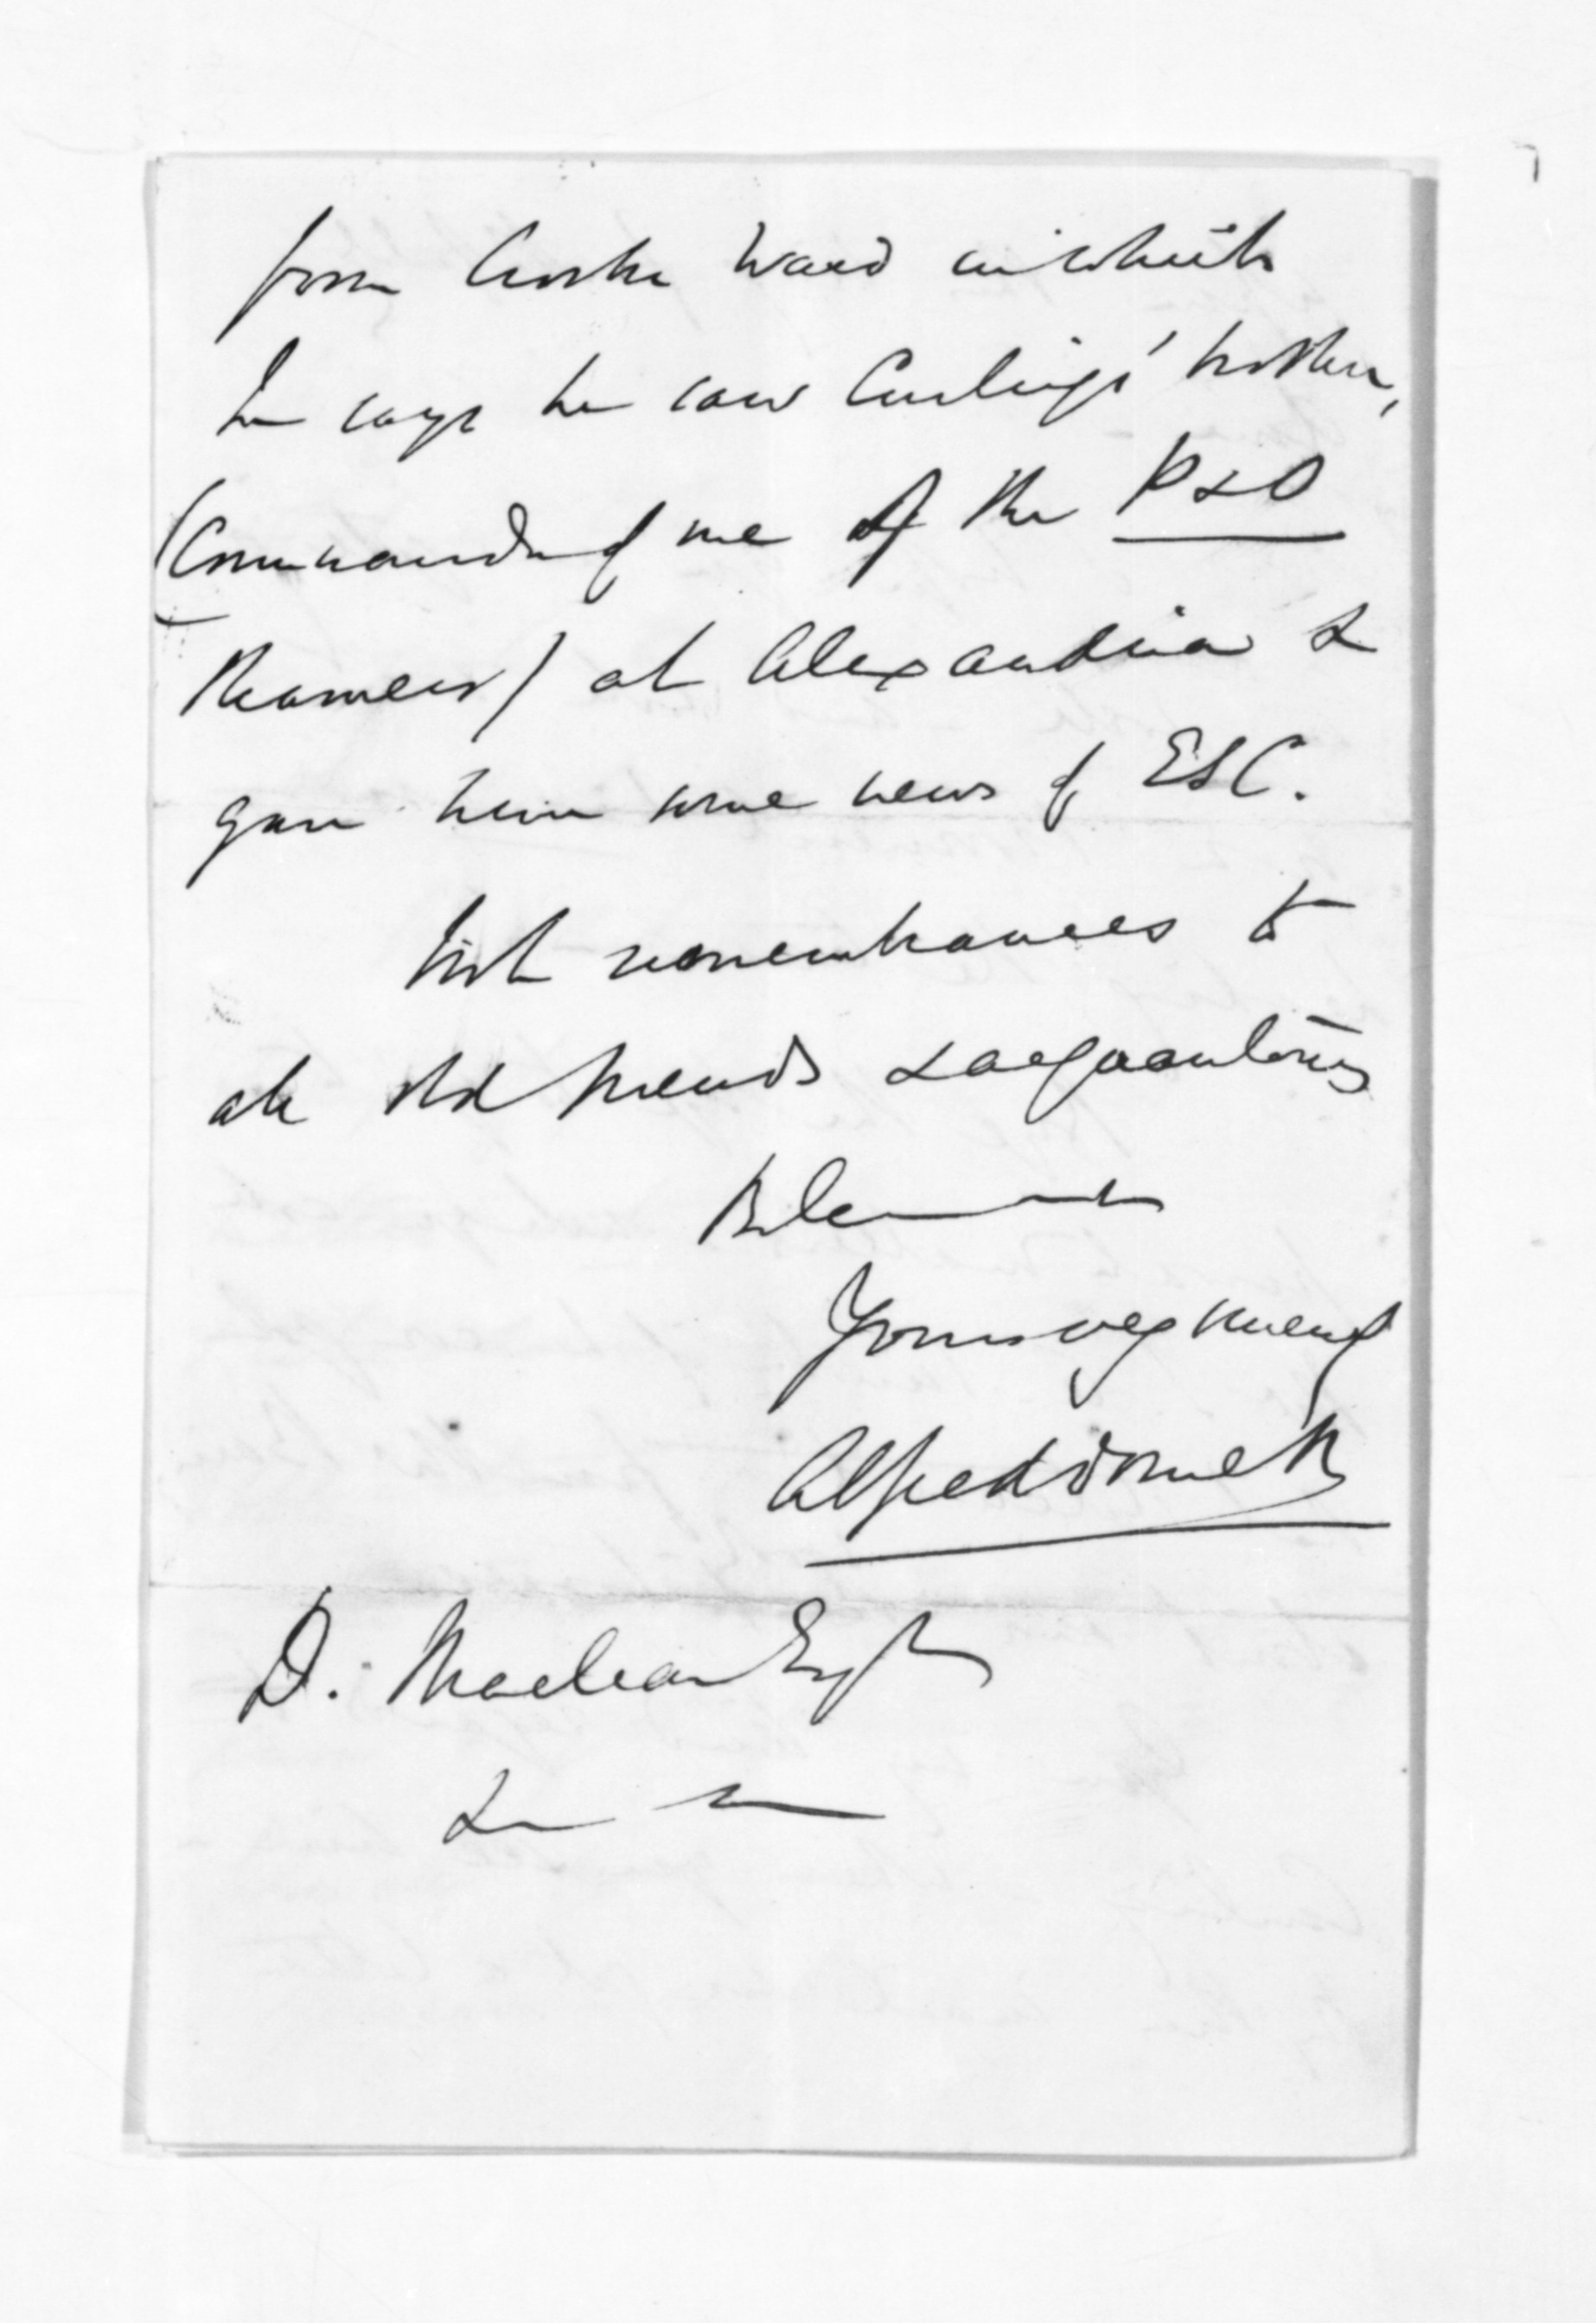 from Crosbie Ward in which
he says he saw Curlings' brother,
(Commanding one of the P & O
Steamers) at Alexandria &
gave him some news of ESC.
With remembrances to
all old friends & acquaintances
Believe me
Yours very sincerely
Alfred Domett
D. Maclean Esq